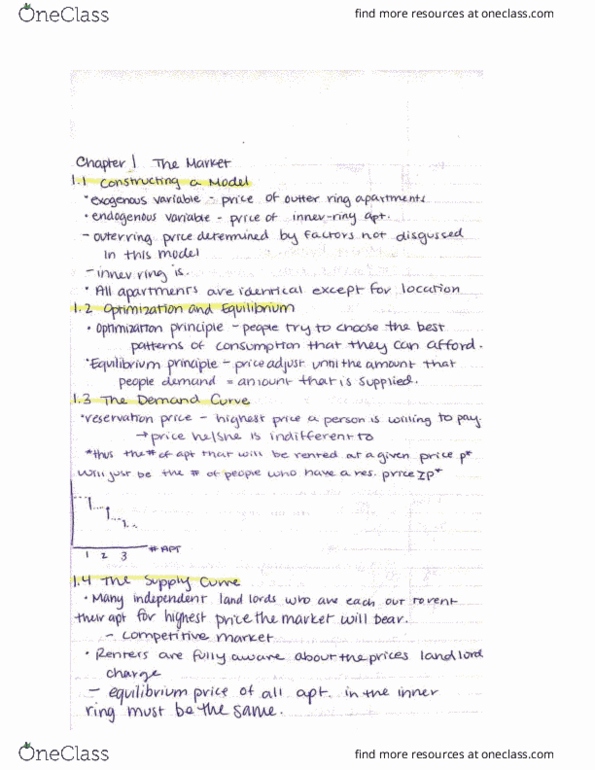 OneClass
find more resources at oneclass.com
Chapter 1 The Market
1.1 Constructing a Model
• exogenous variable - price of outter ring apartments
• endogenous variable - price of inner-ring apt.
- outerring price determined by factors not disgussed
in this model
- inner ring is.
• All apartments are identical except for location
1.2 Optimization and Equilibrium
• Optimization principle - people try to choose the best
patterns of consumption that they can afford.
• Equilibrium principle - price adjust until the amount that
people demand = amount that is supplied.
1.3 The Demand Curve
• reservation price - highest price a person is willing to pay.
→ price he/she is indifferent to
* thus the # of apt that will be rented at a given price p*
will just be the # of people who have a res. price ≥p*
1 2 3 # APT
1.4 The Supply Curve
• Many independent land lords who are each out to rent
their apt for highest price the market will bear.
- competitive market
• Renters are fully aware about the prices land lord
charge
- equilibrium price of all apt. in the inner
ring must be the same.
OneClass
find more resources at oneclass.com